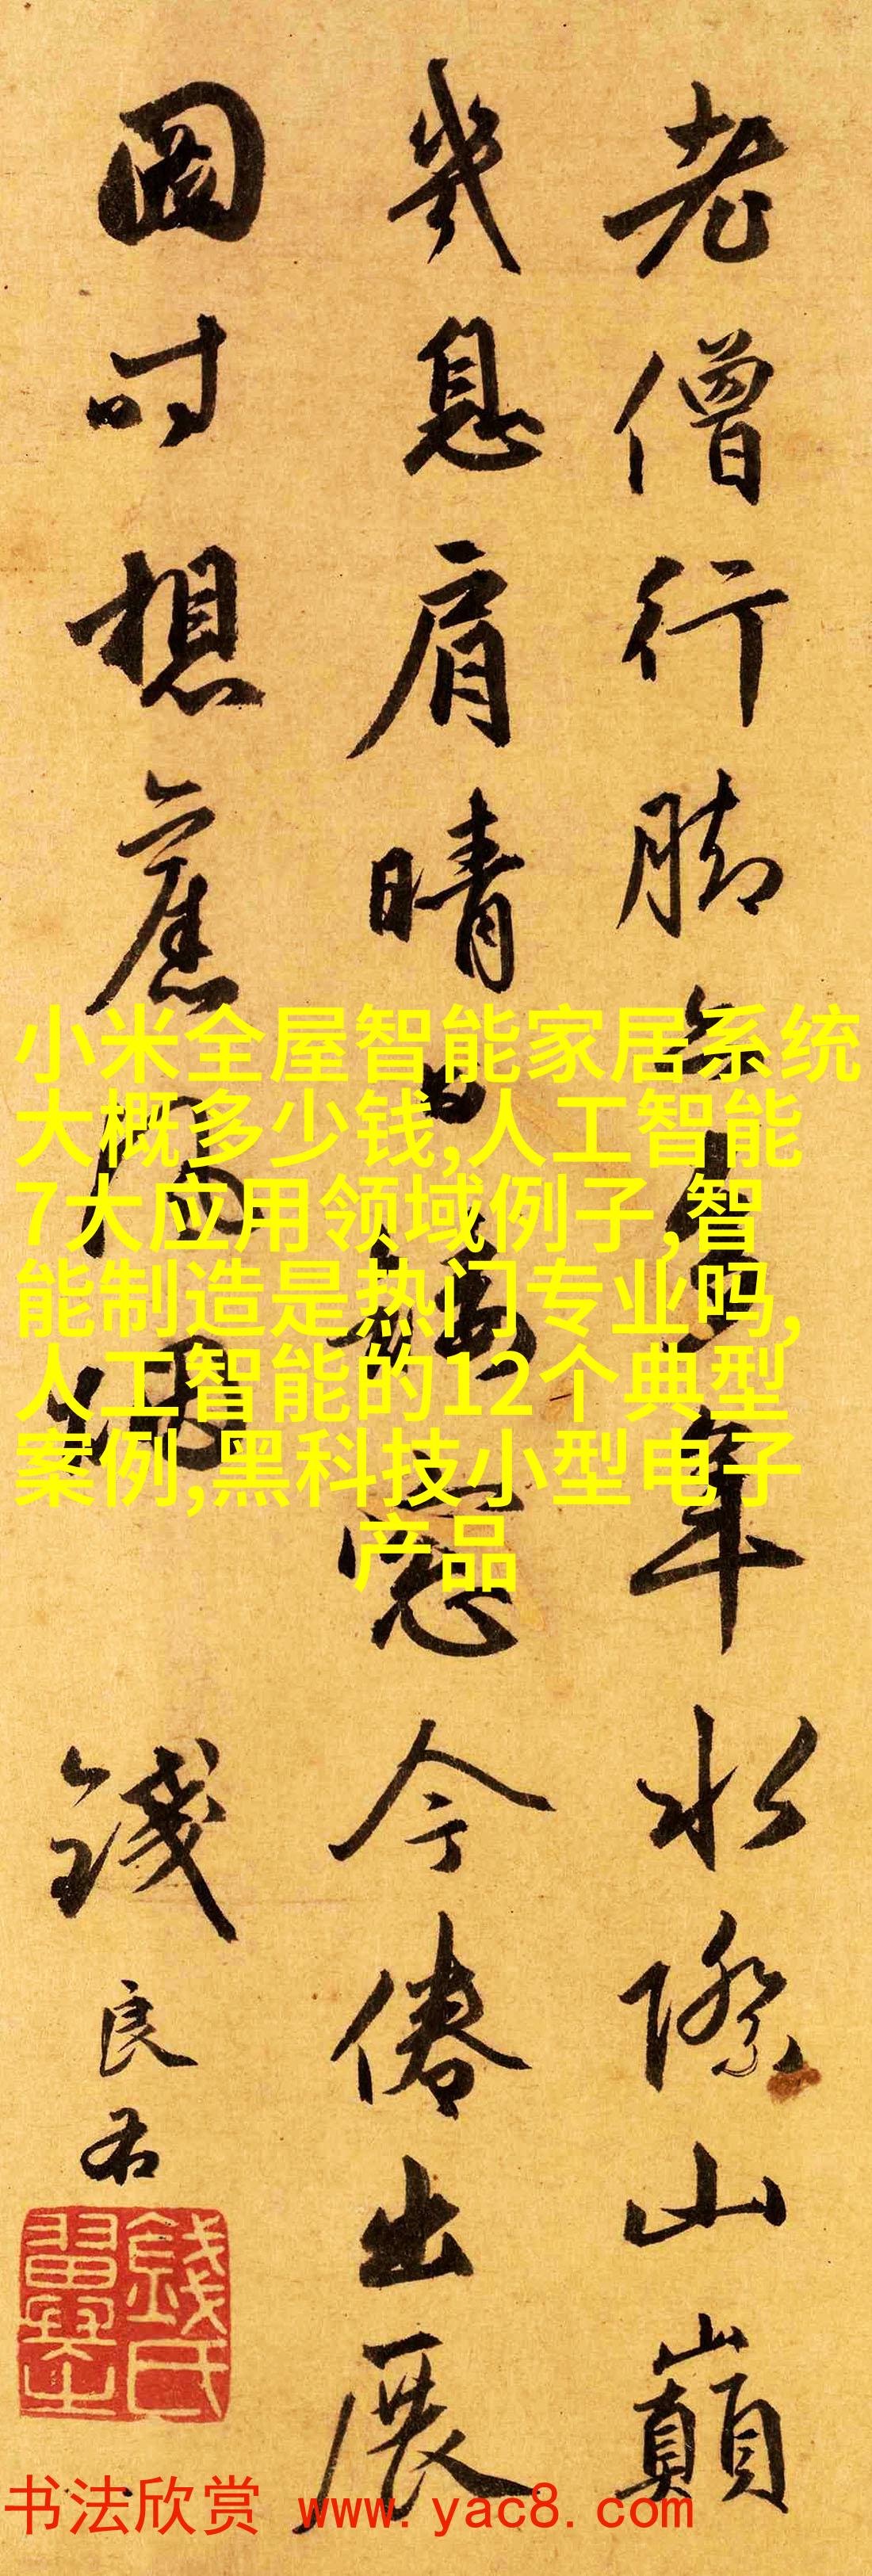 老僧行脚与多年水際山巔
幾息肩晴日鷄窓今倦出展
圖時想舊因縁
錢
良右
小米全屋智能家居系统
大概多少钱,人工智能
7大应用领域例子,智
能制造是热门专业吗,
人工智能的12个典型
案例,黑科技小型电子
产品
书法欣赏 www.yac8.com